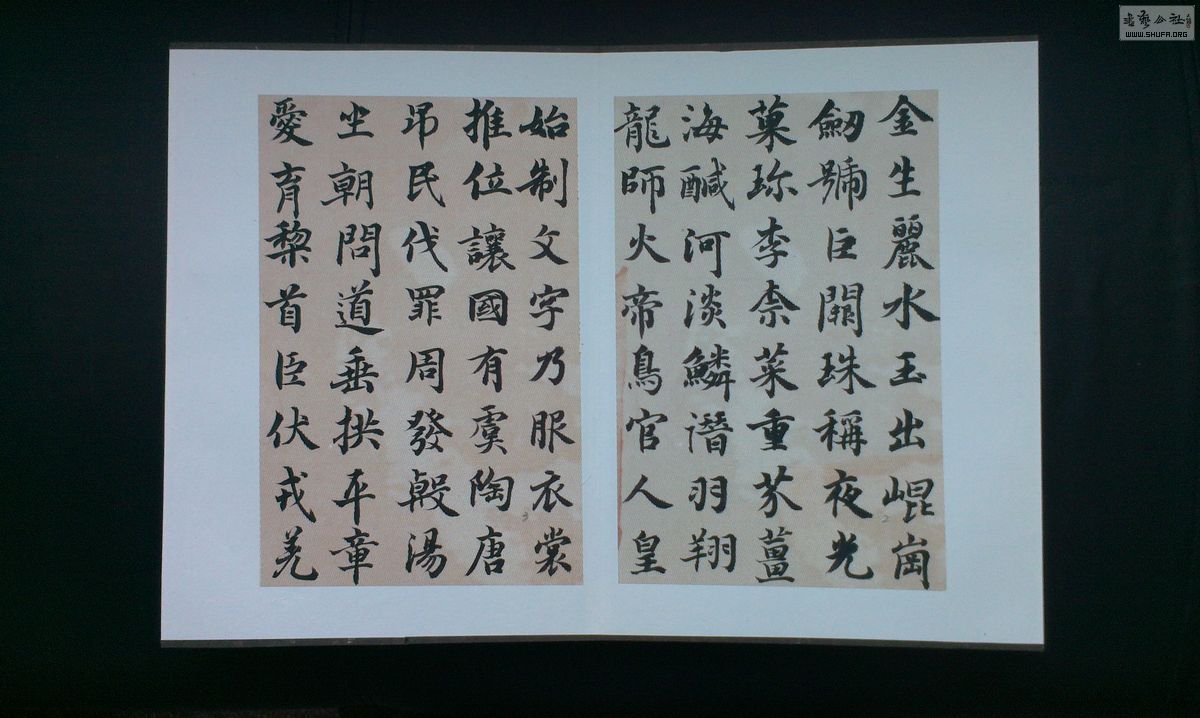 金生麗水玉出崐崗
劒號巨闕珠稱夜光
菓珎李柰菜重芥薑
海醎河淡鱗潛羽翔
龍師火帝鳥官人皇
始制文字乃服衣裳
推位讓國有虞陶唐
弔民伐罪周發殷湯
坐朝問道垂拱平章
愛育黎首臣伏戎羌
書藝公社
WWW.SHUFA.ORG